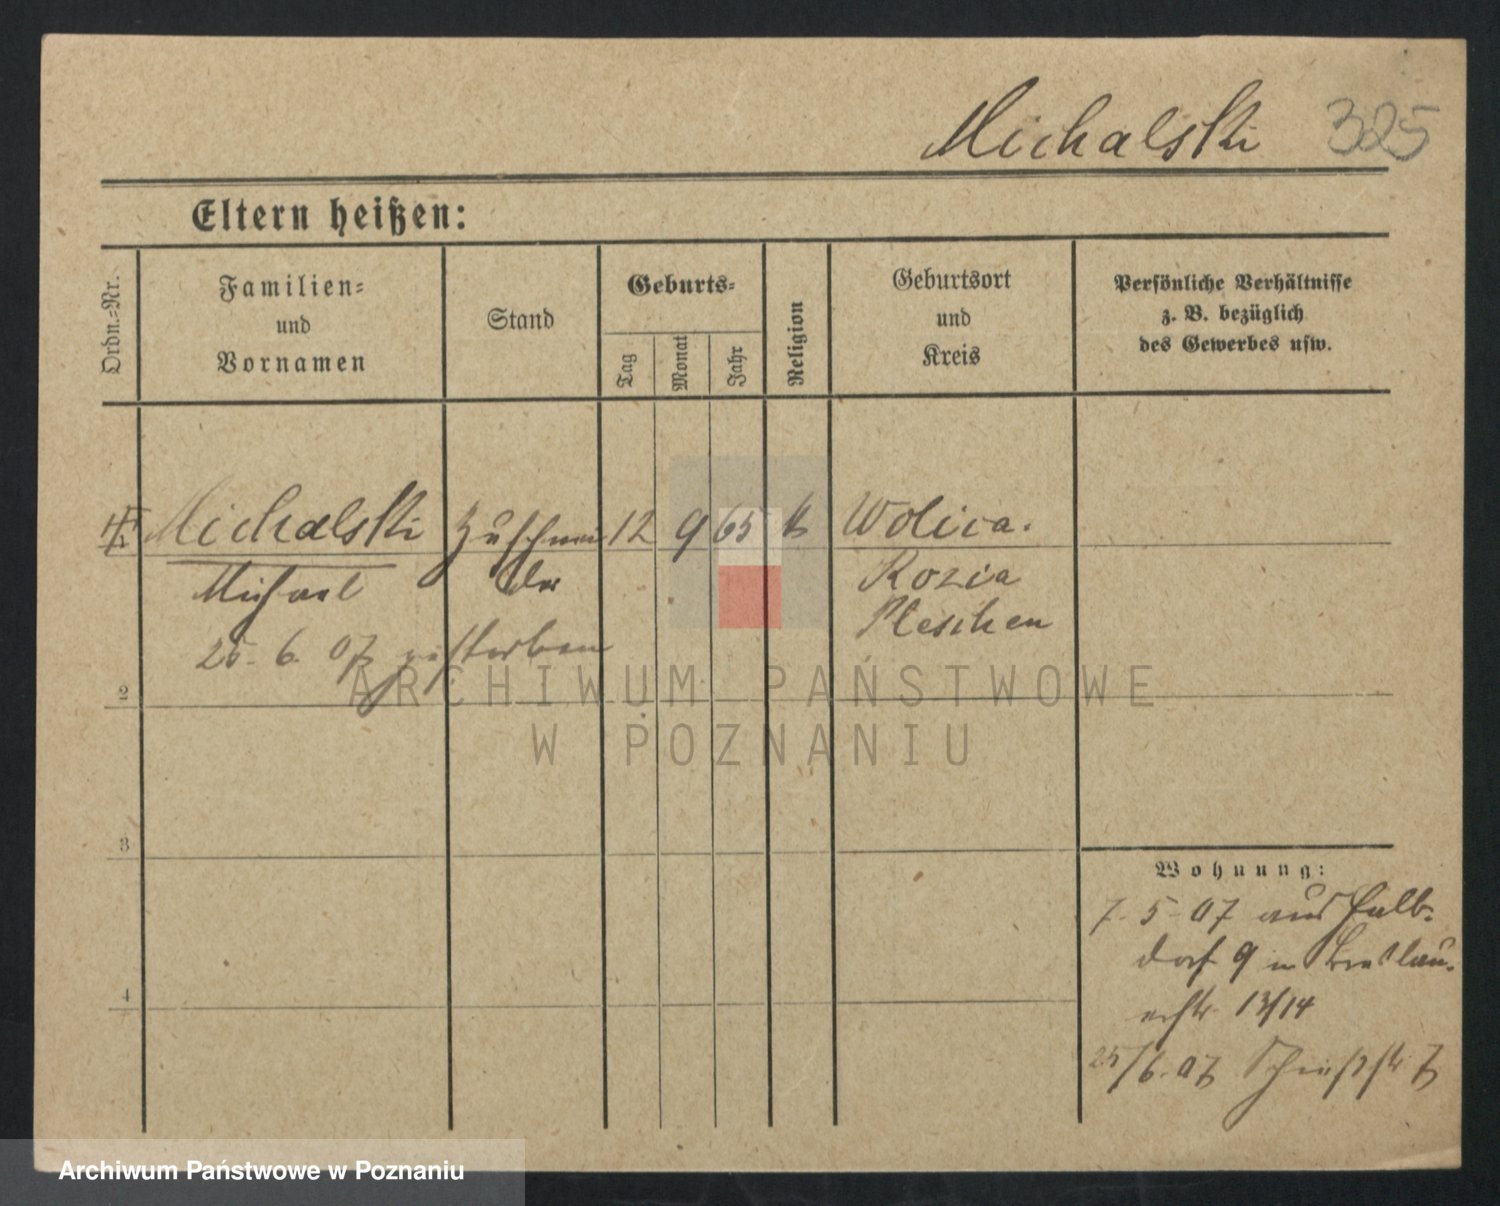 Michalski 325
Eltern heißen:
Ordn.-Nr.
Familien-
und
Vornamen
Stand
Geburts-
Tag
Monat
Jahr
Religion
Geburtsort
und
Kreis
Persönliche Verhältnisse
z. B. bezüglich
des Gewerbes usw.
Michalski Zuschnei 12 9 65 k Wolica.
Michael der Rozia
Pleschen
25. 6. 07 gestorben
2
ARCHIWUM PAŃSTWOWE
W POZNANIU
3
Wohnung:
7. 5. 07 aus Halb-
dorf 9 n Breslau.
erstr 13/14
4
25/6. 07 Schießstr 7
Archiwum Państwowe w Poznaniu